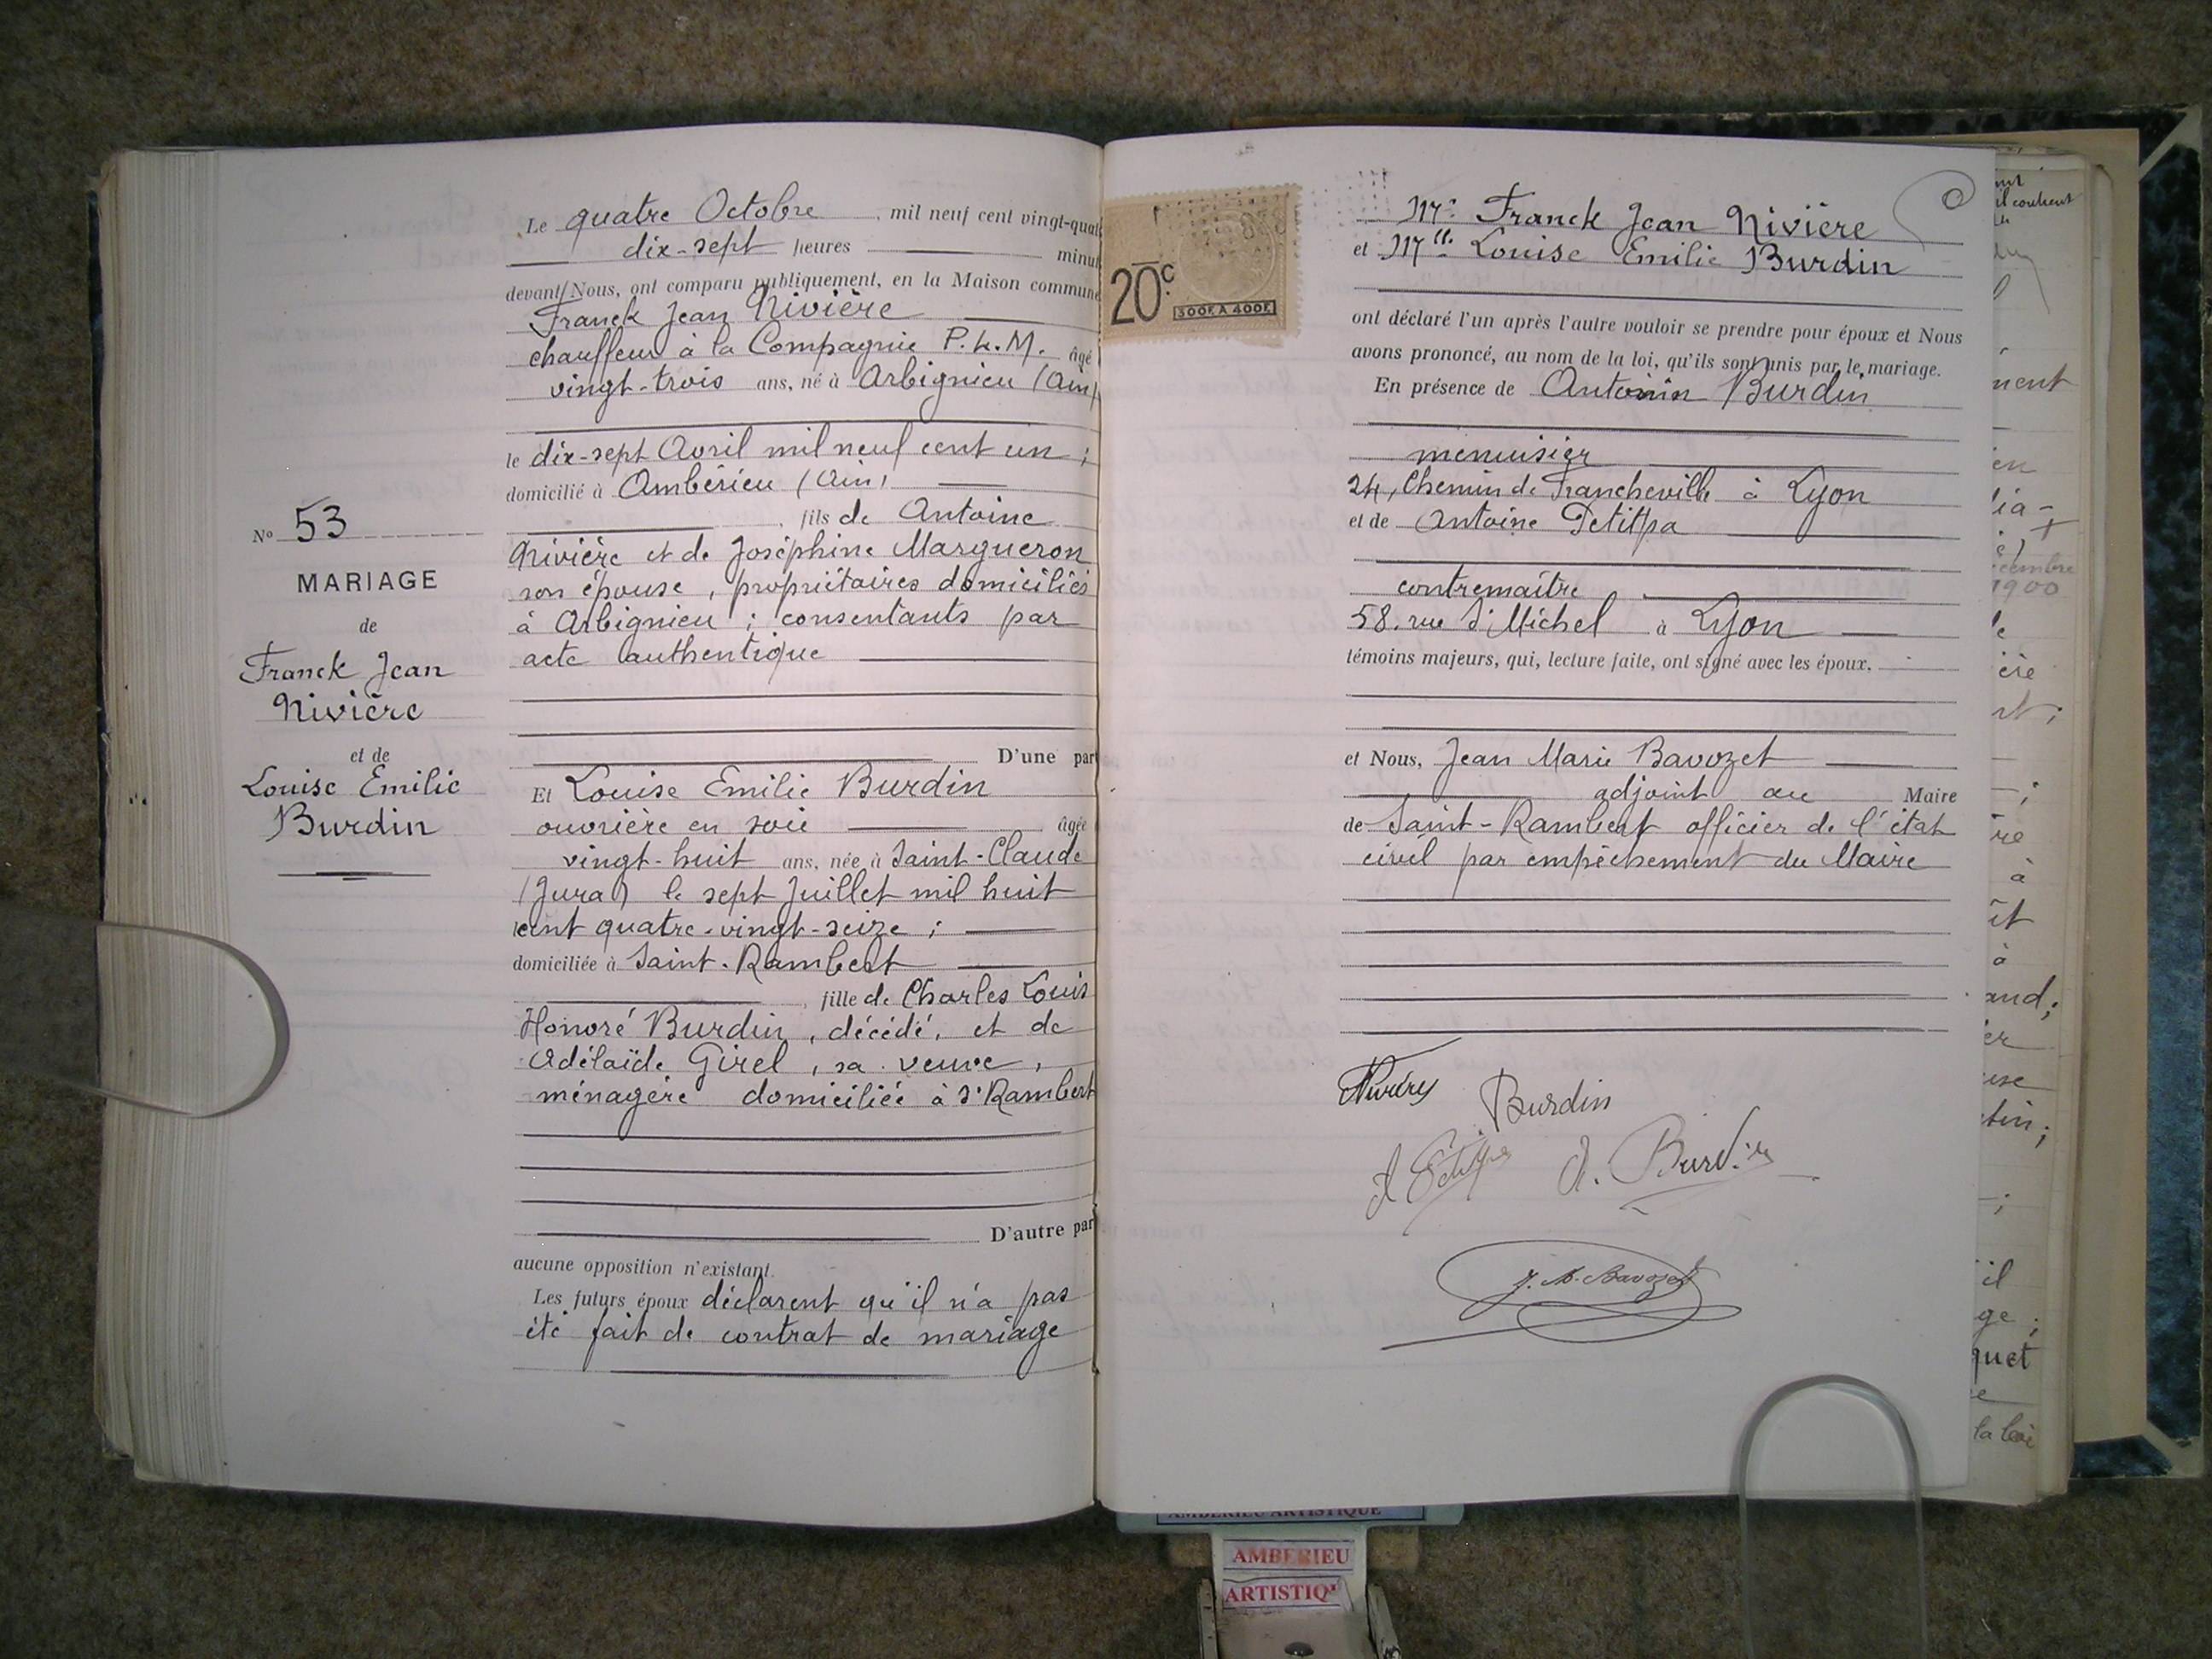 Le quatre Octobre, mil neuf cent vingt-quat
dix-sept heures minut
devant Nous, ont comparu publiquement, en la Maison commune
Franck Jean Nivière
chauffeur à la Compagnie P.L.M. âgé
vingt-trois ans, né à Arbignieu (Ain)
le dix-sept Avril mil neuf cent un ;
domicilié à Ambérieu (Ain)
, fils de Antoine
Nivière et de Joséphine Margueron
son épouse, propriétaires domiciliés
à Arbignieu ; consentants par
acte authentique
D'une part
Et Louise Emilie Burdin
ouvrière en soie âgée
vingt-huit ans, née à Saint-Claude
(Jura) le sept Juillet mil huit
cent quatre-vingt-seize ;
domiciliée à Saint-Rambert
, fille de Charles Louis
Honoré Burdin, décédé, et de
Adélaïde Girel, sa veuve,
ménagère domiciliée à St Rambert
D'autre par
aucune opposition n'existant.
Les futurs époux déclarent qu'il n'a pas
été fait de contrat de mariage
No 53
MARIAGE
de
Franck Jean
Nivière
et de
Louise Emilie
Burdin
20c
300F. A 400F.
Mr. Franck Jean Nivière
et Mlle. Louise Emilie Burdin
ont déclaré l'un après l'autre vouloir se prendre pour époux et Nous
avons prononcé, au nom de la loi, qu'ils sont unis par le mariage.
En présence de Antonin Burdin
menuisier
24, Chemin de Francheville à Lyon
et de Antoine Petitpa
contremaître
58, rue St Michel à Lyon
témoins majeurs, qui, lecture faite, ont signé avec les époux.
et Nous, Jean Marie Bavozet
adjoint au Maire
de Saint-Rambert officier de l'état
civil par empêchement du Maire
Burdin
A. Burdin
J. M. Bavozet
nent
en
lia-
1900
le
ère
nt ;
re
à
ît
à
and ;
er
use
tin ;
il
ge ;
quet
e
la loi
AMBERIEU ARTISTIQUE
AMBERIEU
ARTISTIQ